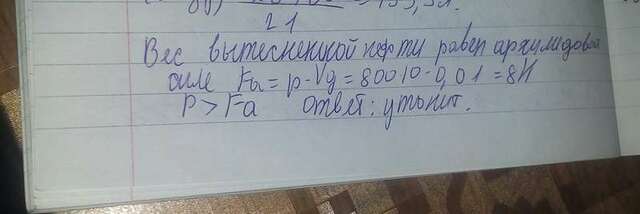 21
Вес вытесненной нефти равен архимедовой
силе Fa = p·Vg = 80010·0,01 = 8Н
P > Fa Ответ: утонит.